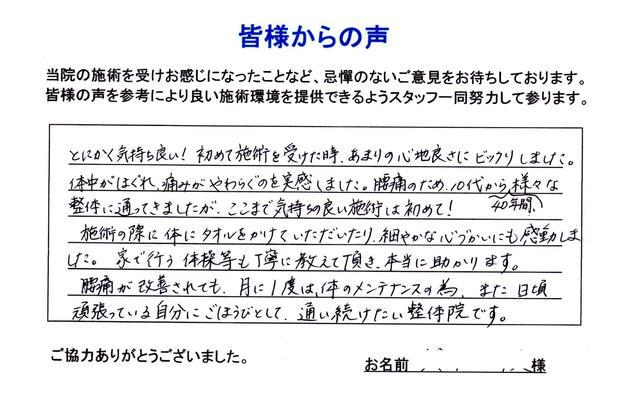 皆様からの声
当院の施術を受けお感じになったことなど、忌憚のないご意見をお待ちしております。
皆様の声を参考により良い施術環境を提供できるようスタッフ一同努力して参ります。
とにかく気持ち良い！初めて施術を受けた時、あまりの心地良さにビックリしました。
体中がほぐれ、痛みがやわらぐのを実感しました。腰痛のため、10代から様々な
40年間、
整体に通ってきましたが、ここまで気持ちの良い施術は初めて！
施術の際に体にタオルをかけていただいたり、細やかな心づかいにも感動しま
した。家で行う体操等も丁寧に教えて頂き、本当に助かります。
腰痛が改善されても、月に1度は、体のメンテナンスの為、また日頃
頑張っている自分にごほうびとして、通い続けたい整体院です。
ご協力ありがとうございました。
お名前 様